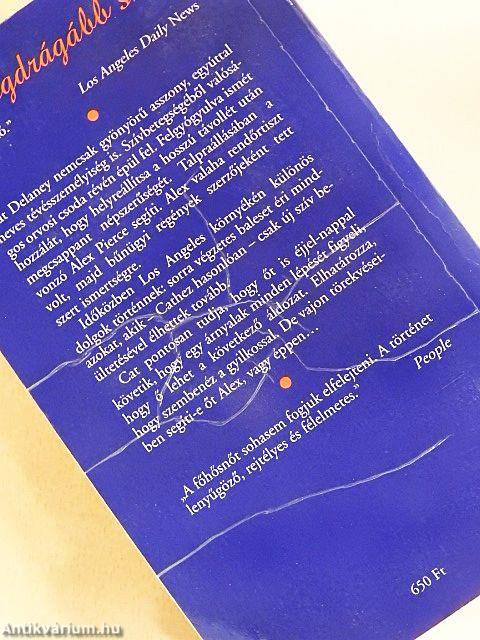 gdrágább s
ó."
Los Angeles Daily News
at Delaney nemcsak gyönyörű asszony, egyúttal
neves tévészemélyiség is. Szívbetegségéből valósá-
gos orvosi csoda révén épül fel. Felgyógyulva ismét
hozzálát, hogy helyreállítsa a hosszú távollét után
megcsappant népszerűségét. Talpraállásában a
vonzó Alex Pierce segíti. Alex valaha rendőrtiszt
volt, majd bűnügyi regények szerzőjeként tett
szert ismertségre.
Időközben Los Angeles környékén különös
dolgok történnek: sorra végzetes baleset éri mind-
azokat, akik – Cathez hasonlóan – csak új szív be-
ültetésével élhettek tovább.
Cat pontosan tudja, hogy őt is éjjel-nappal
követik, hogy egy árnyalak minden lépését figyeli,
hogy ő lehet a következő áldozat. Elhatározza,
hogy szembenéz a gyilkossal. De vajon törekvései-
ben segíti-e őt Alex, vagy éppen...
„A főhősnőt sohasem fogjuk elfelejteni. A történet
lenyűgöző, rejtélyes és félelmetes."
People
650 Ft
Antikvárium.hu